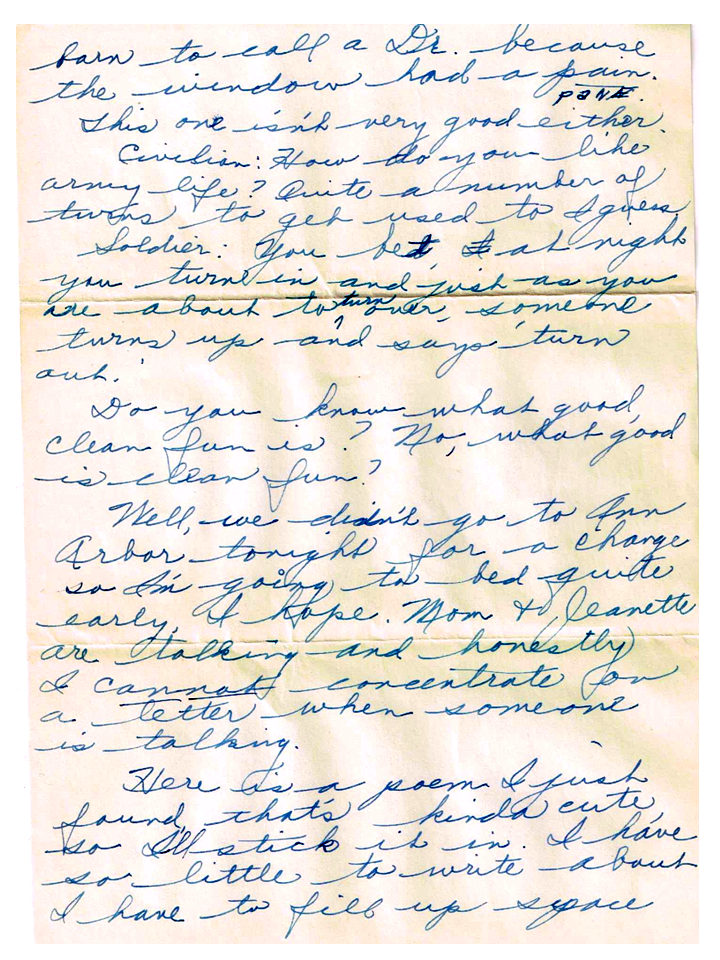 barn to call a Dr. because
the window had a pain.
PANE.
This one isn't very good either.
Civilian: How do you like
army life? Quite a number of
turns to get used to I guess.
Soldier: You bet, at night
you turn in and just as you
are about to turn over, someone
turns up and says 'turn
out.'
Do you know what good,
clean fun is? No, what good
is clean fun?
Well, we didn't go to Ann
Arbor tonight for a change
so I'm going to bed quite
early, I hope. Mom & Jeanette
are talking and honestly
I cannot concentrate on
a letter when someone
is talking.
Here is a poem I just
found, that's kinda cute,
so I'll stick it in. I have
so little to write about
I have to fill up space